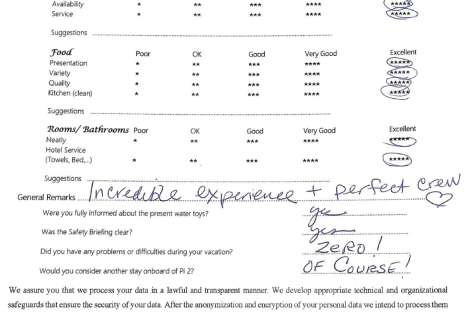 Availability * ** *** **** *****
Service * ** *** **** *****
Suggestions
Food Poor OK Good Very Good Excellent
Presentation * ** *** **** *****
Variety * ** *** **** *****
Quality * ** *** **** *****
Kitchen (clean) * ** *** **** *****
Suggestions
Rooms/ Bathrooms Poor OK Good Very Good Excellent
Neatly * ** *** **** *****
Hotel Service
(Towels, Bed,..) * ** *** **** *****
Suggestions
General Remarks Incredible experience + perfect crew
Were you fully informed about the present water toys? yes
Was the Safety Briefing clear? yes
Did you have any problems or difficulties during your vacation? ZERO!
Would you consider another stay onboard of Pi 2? OF COURSE!
We assure you that we process your data in a lawful and transparent manner. We develop appropriate technical and organizational
safeguards that ensure the security of your data. After the anonymization and encryption of your personal data we intend to process them